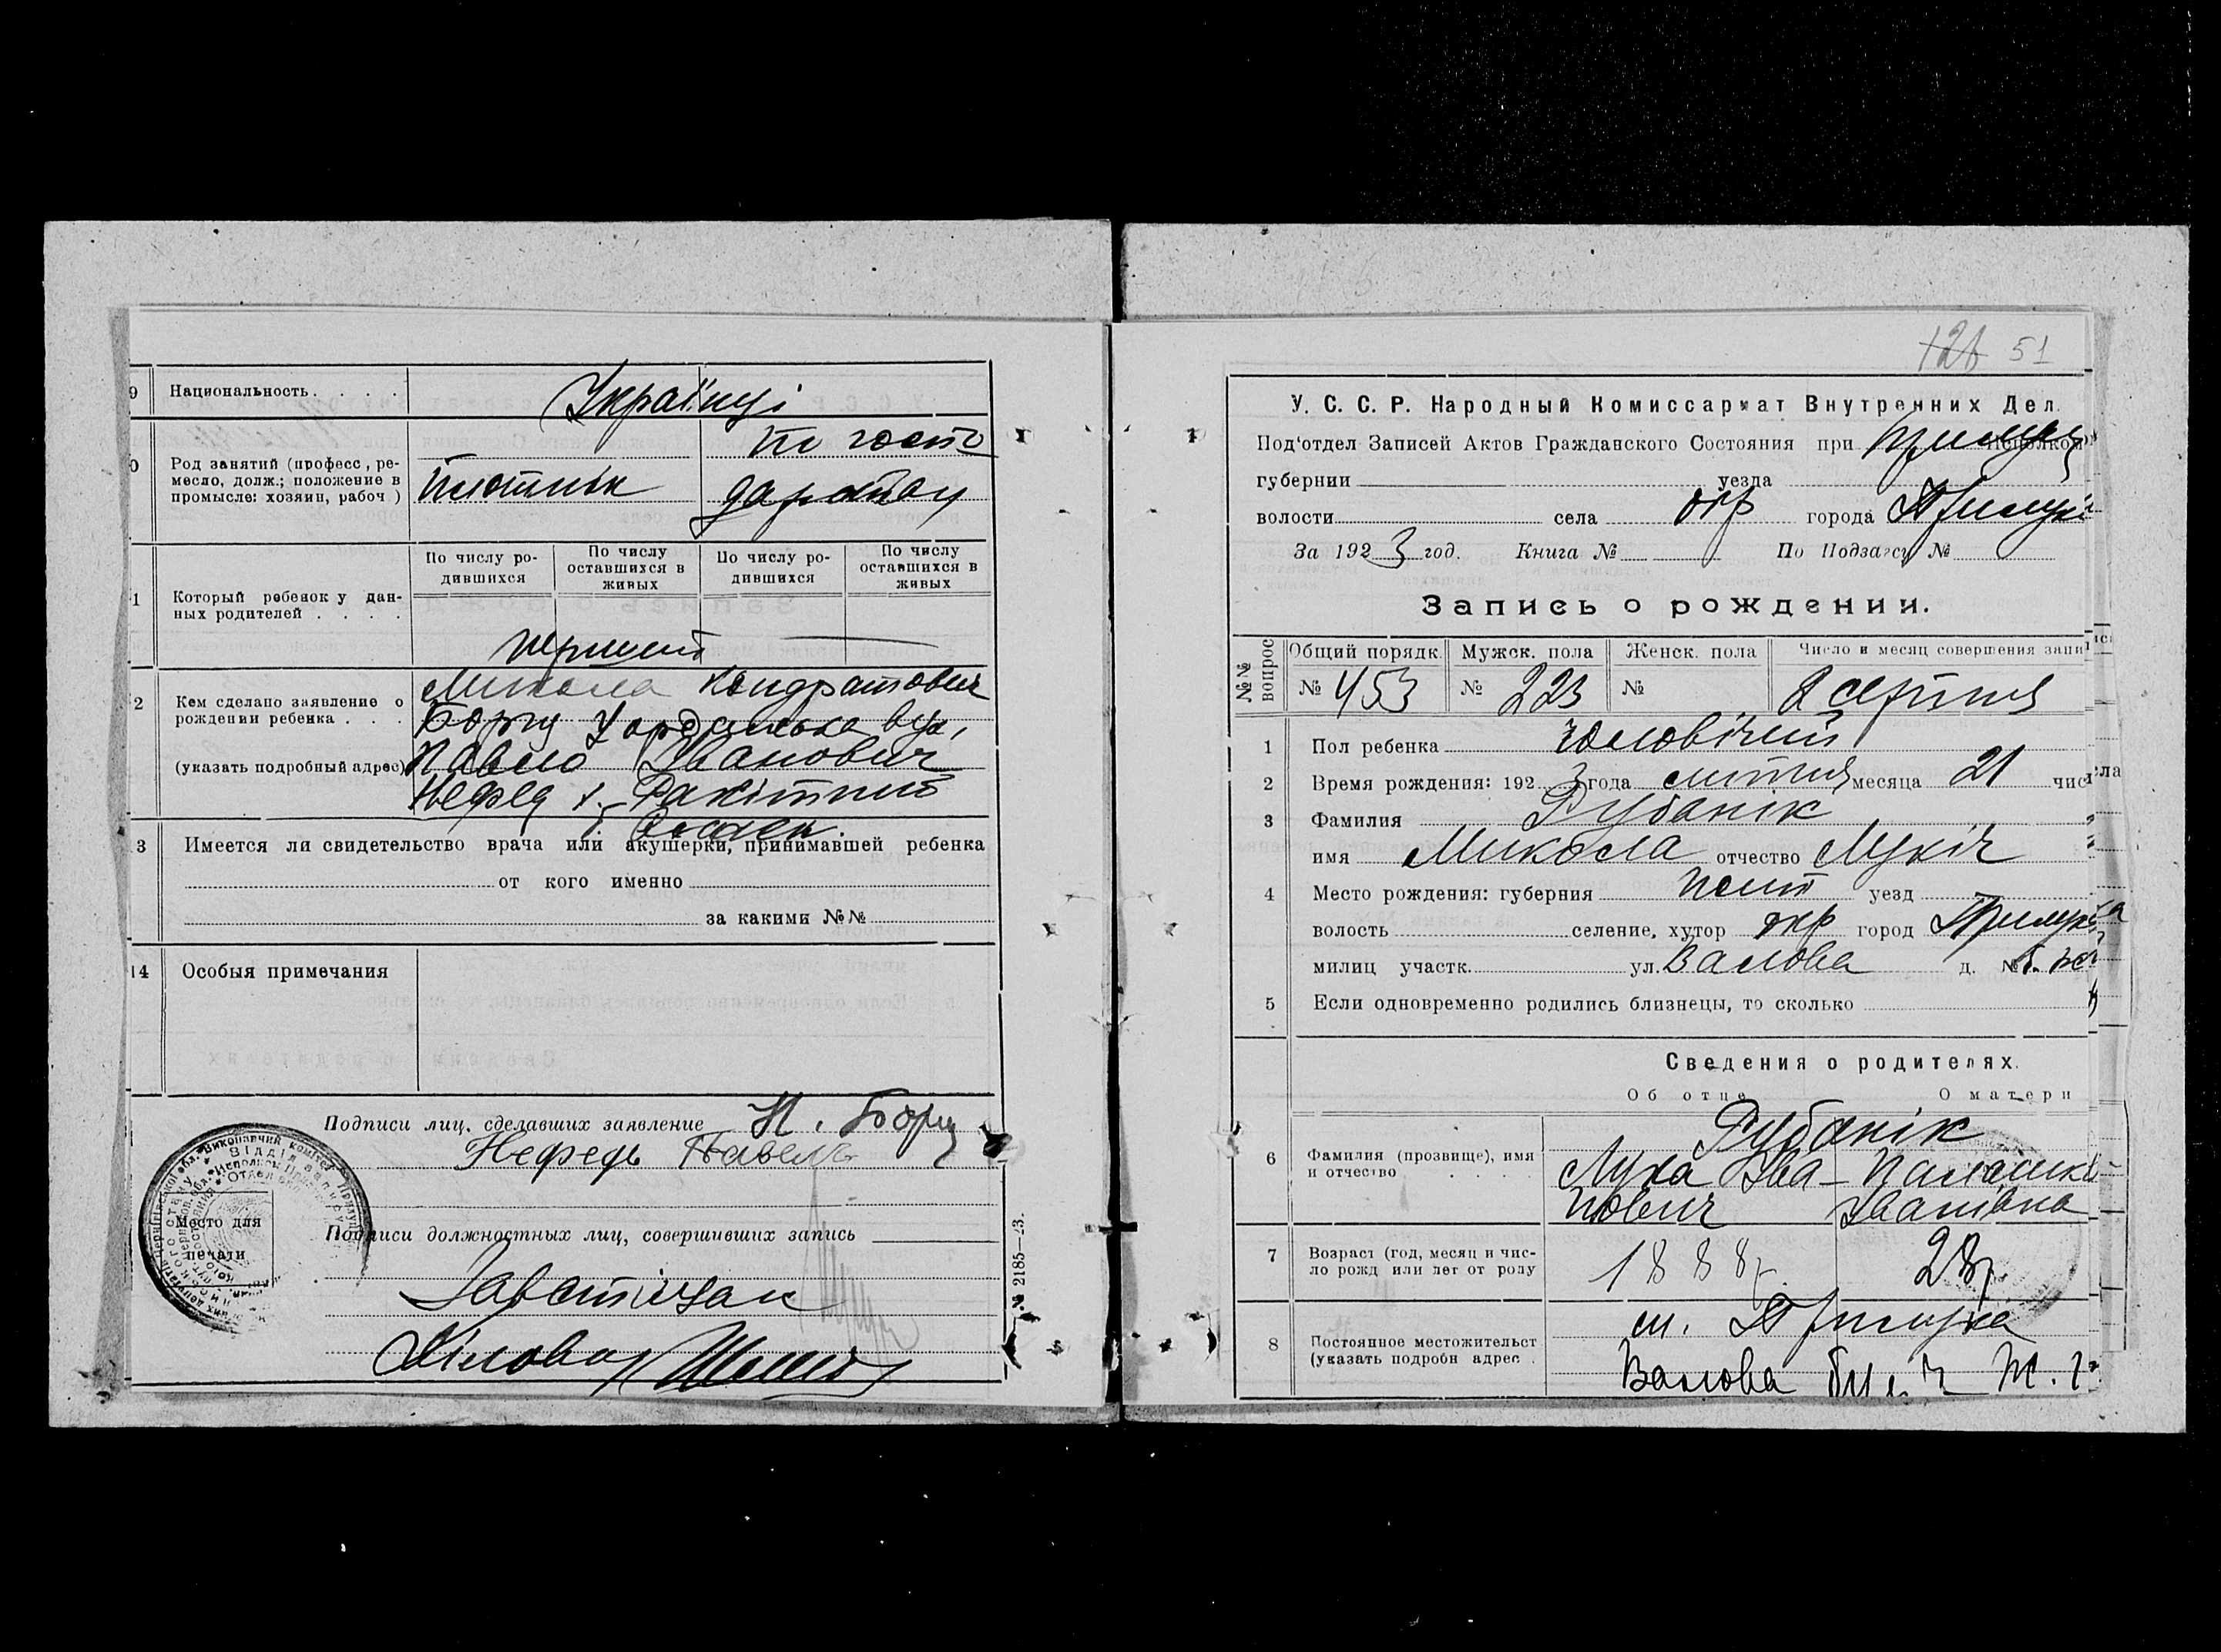 9 Национальность . . . . . Українці
0 Род занятий (професс, ре-
месло, долж.; положение в
промысле: хозяин, рабоч )
Плотнік
по госпо
дарству
По числу ро-
дившихся
По число
оставшихся в
живых
По числу ро-
дившихся
По число
оставшихся в
живых
1 Который ребенок у дан-
ных родителей . . . .
перший
2 Кем сделано заявление о
рождении ребенка . . .
(указать подробный адрес)
Микола Кондратович
Борщ вул,
Павло Іванович
Нефед
3 Имеется ли свидетельство врача или акушерки, принимавшей ребенка
от кого именно
за какими №№
14 Особыя примечания
Подписи лиц, сделавших заявление Н. Борщ
Нефедь Павель
Место для
печати
Подписи должностных лиц, совершивших запись
№ 2185—23.
126 51
У. С. С. Р. Народный Комиссариат Внутренних Дел.
Под'отдел Записей Актов Гражданского Состояния при Прилуц Исполком
губернии уезда
волости села окр города Прилуки
За 1923 год. Книга № По Подзагсу №
Запись о рождении.
№№ вопрос
Общий порядк.
№ 453
Мужск. пола
№ 223
Женск. пола
№
Число и месяц совершения запи
2 серпня
1 Пол ребенка чоловічий
2 Время рождения: 1923 года липня месяца 21 числа
3 Фамилия Рубанік
имя Микола отчество Лукіч
4 Место рождения: губерния Полт уезд
волость селение, хутор окр город Прилука
милиц участк. ул. Валова д. №
5 Если одновременно родились близнецы, то сколько
Сведения о родителях.
Об отце О матери
6 Фамилия (прозвище), имя
и отчество . . . .
Рубанік
Лука Іва-
нович
Палашка
Іванівна
7 Возраст (год, месяц и чис-
ло рожд или лет от роду
1888р. 28р.
8 Постоянное местожительст
(указать подробн адрес .
м. Прилука
Валова